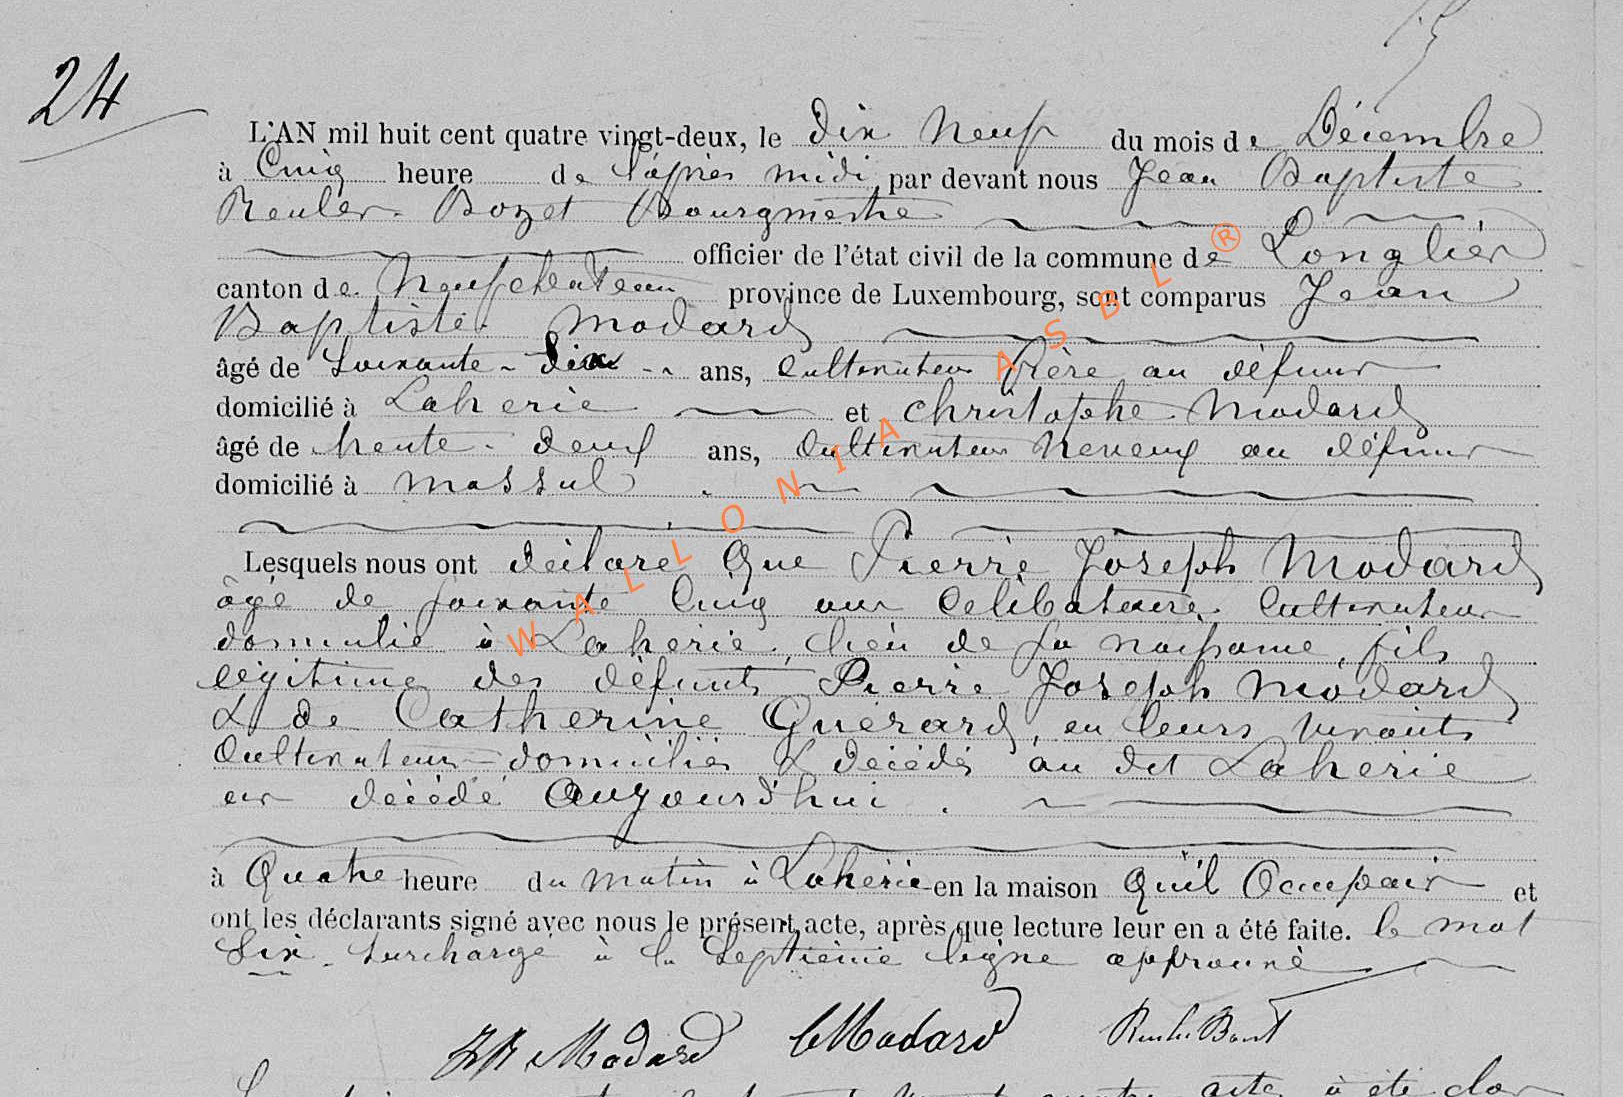 24
L'AN mil huit cent quatre vingt-deux, le dix neuf du mois de Décembre
à Cinq heure de l'après midi par devant nous Jean Baptiste
Reuler Bozet Bourgmestre
officier de l'état civil de la commune de Longlier
canton de Neufchateau province de Luxembourg, sont comparus Jean
Baptiste Modard
âgé de soixante-dix ans, Cultivateur frère au défunt
domicilié à Laherie et Christophe Modard
âgé de trente-deux ans, Cultivateur Neveux au défunt
domicilié à Massul
Lesquels nous ont déclaré que Pierre Joseph Modard
âgé de soixante Cinq ans Célibataire Cultivateur
domicilié à Laherie, lieu de sa naissance, fils
légitime des défunts Pierre Joseph Modard
& de Catherine Guérard, en leurs vivants
Cultivateurs domiciliés & décédés au dit Laherie
est décédé aujourd'hui.
à Quatre heure du matin à Laherie en la maison qu'il Occupait et
ont les déclarants signé avec nous le présent acte, après que lecture leur en a été faite. le mot
dix surchargé à la septième ligne approuvé
JB Modard C Modard
acte a été clos
WALLONIA ASBL ®